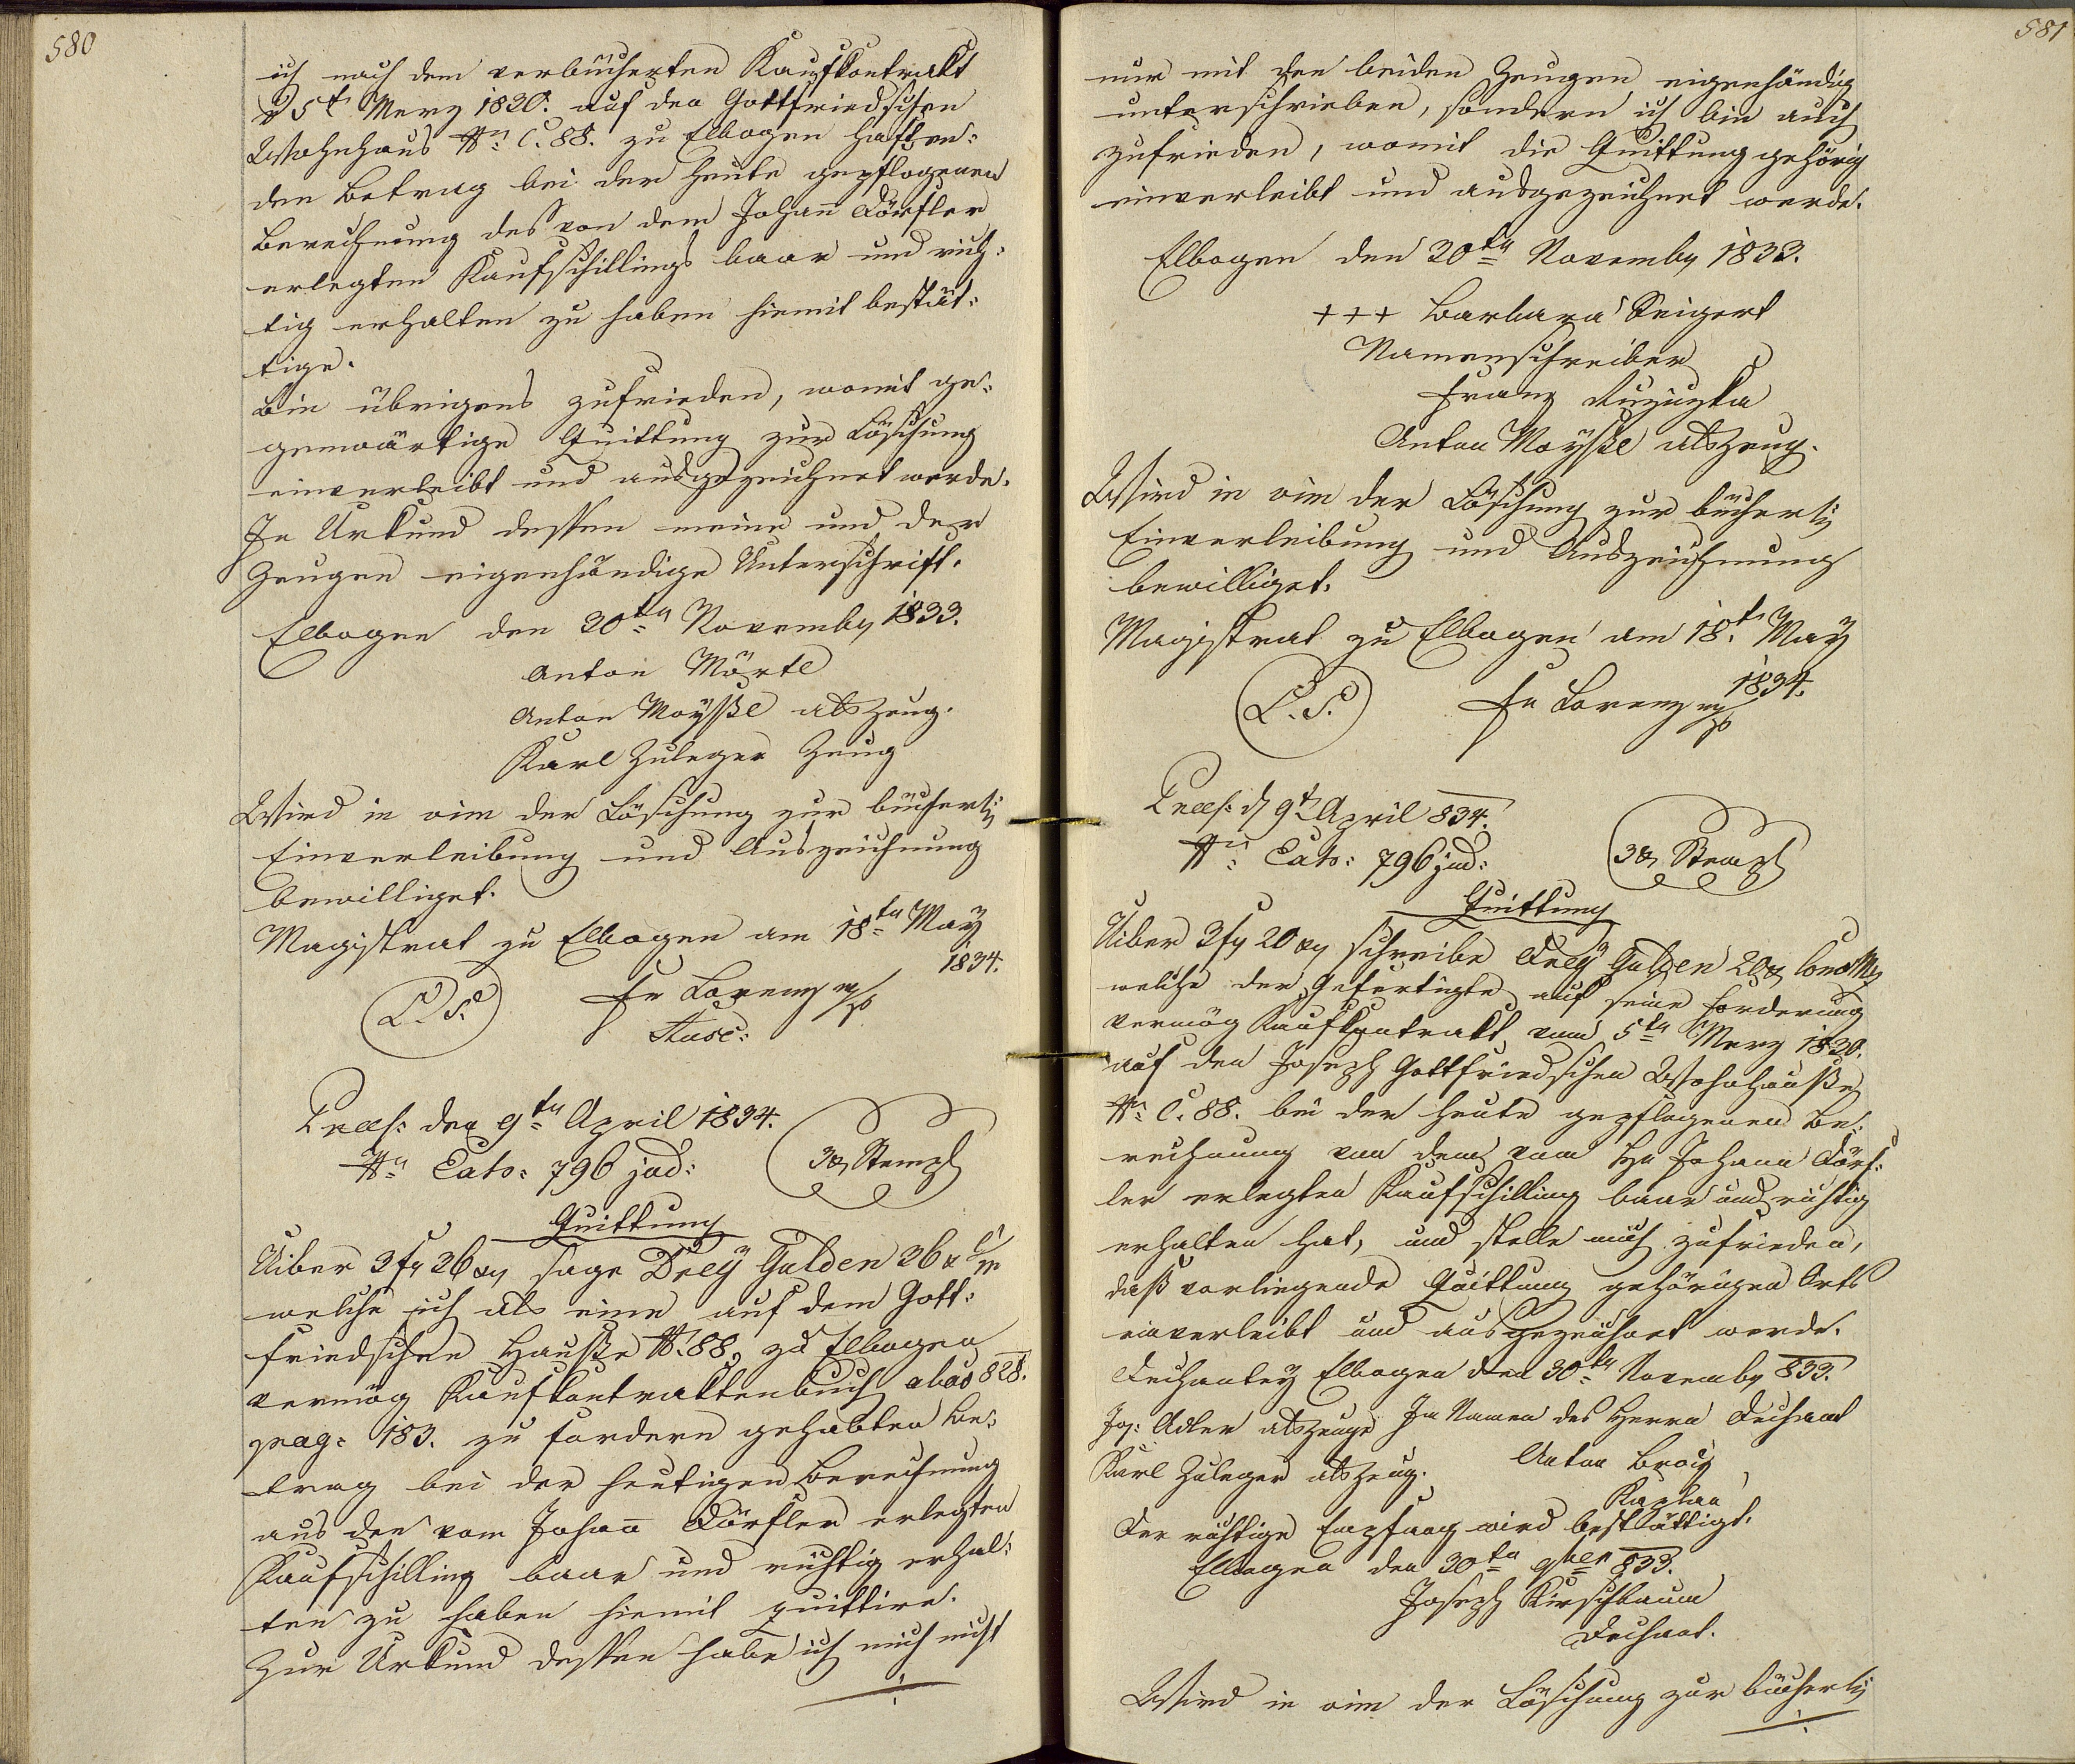 580
ich nach dem verbücherten Kaufkontrakt
d 5t Merz 1820. auf den Gottfriedschen
Wohnhaus No C. 88. zu Elbogen haften-
den Betrag bei der heute gepflogenen
Berechnung des von dem Johann Dörfler
erlegten Kaufschillings baar und rich-
tig erhalten zu haben hiemit bestät-
tige.
Bin übrigens zufrieden, womit ge-
genwärtige Quittung zur Löschung
einverleibt und ausgezeichnet werde.
In Urkund dessen meine und der
Zeugen eigenhändige Unterschrift.
Elbogen den 20ten Novemb 1833.
Anton Mörtl
Anton Moyßl als Zeug.
Karl Zuleger Zeug
Wird in vim der Löschung zur bücherl
Einverleibung und Auszeichnung
bewilliget.
Magistrat zu Elbogen am 18ten May
1834.
L. S. Fr Lorenz m/p
Praes: den 9ten April 1834.
Nro Exh: 796 jud:
3x Stempl
Quittung
Uiber 3 fr 36 xr sage Drey Gulden 36 x C/m
welche ich als einen auf dem Gott-
friedschen Hauße N. 88, zu Elbogen
vermög Kaufkontraktenbuch 828.
pag: 183. zu fordern gehabten Be-
trag bei der heutigen Berechnung
aus den vom Johann Dörfler erlegten
Kaufschilling baar und richtig erhal-
ten zu haben hiemit quittire.
Zur Urkund dessen habe ich mich nicht
581
nur mit den beiden Zeugen eigenhändig
unterschrieben, sondern ich bin auch
zufrieden, womit die Quittung gehörig
einverleibt und ausgezeichnet werde.
Elbogen den 20ten Novemb 1833.
+++ Barbara Seigert
Namenschreiber
Franz
Anton Moyßl als Zeug.
Wird in vim der Löschung zur bücherl
Einverleibung und Auszeichnung
bewilliget.
Magistrat zu Elbogen am 18t May
1834.
L. S. Fr Lorenz m/p
Praes: d 9t April 834.
Nro Exh: 796 jud:
3x Stempl
Quittung
Uiber 3 fr 20 xr schreibe Drey Gulden 20x Conv Mz
welche der Gefertigte auf seine Forderung
vermög Kaufkontrakt vom 5ten Merz 1820.
auf den Joseph Gottfriedschen Wohnhauße
No C. 88. bei der heute gepflogenen Be-
rechnung von dem vom Hr Johann Dörf-
ler erlegten Kaufschilling baar und richtig
erhalten hat, und stelle mich zufrieden,
daß vorliegende Quittung gehörigen Orts
einverleibt und ausgezeichnet werde.
Dechantey Elbogen den 30ten Novemb 833.
Jos: Adler als Zeuge Im Namen des Herrn Dechant
Karl Zuleger als Zeug. Anton
Kaplan
Der richtige Empfang wird bestättigt.
Elbogen den 30ten 9ber 833.
Joseph Kirschbaum
Dechant.
Wird in vim der Löschung zur bücherl